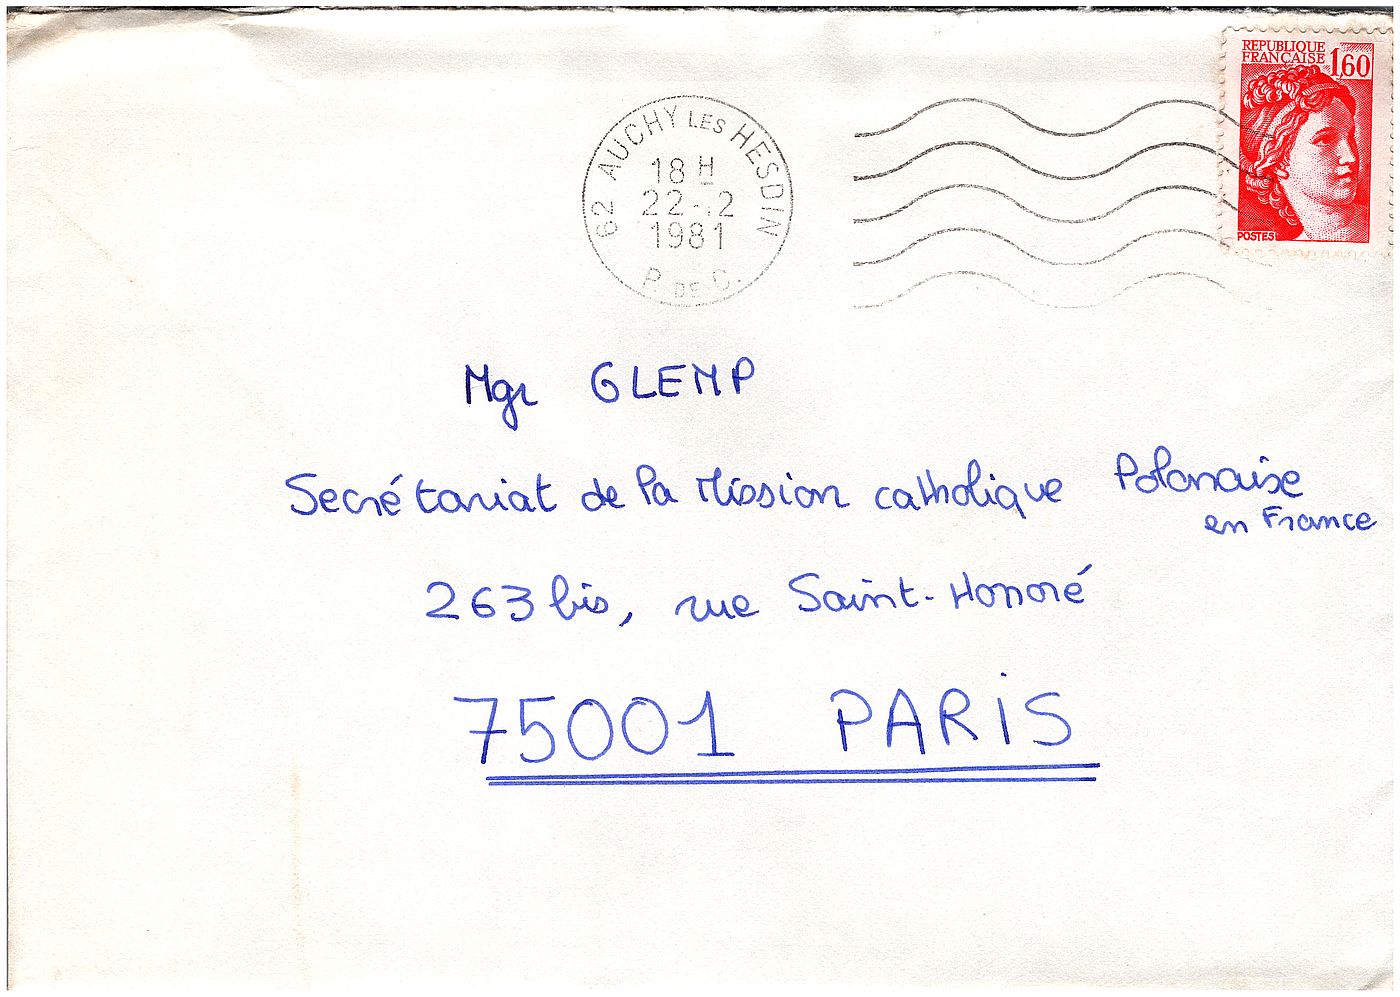 REPUBLIQUE
FRANÇAISE 1,60
POSTES
62 AUCHY LES HESDIN
18 H
22 - 12
1981
P. DE C.
Mgr GLEMP
Secrétariat de la Mission catholique Polonaise
en France
263 bis, rue Saint-Honoré
75001 PARIS